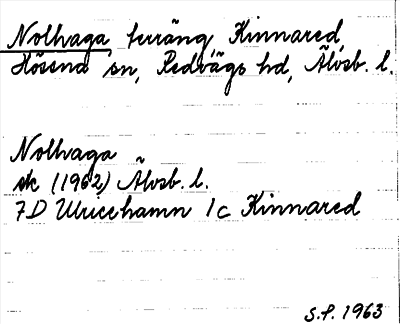 Nolhaga terräng Kinnared,
Hössna sn, Redvägs hd, Älvsb. l.
Nolhaga
ek (1962) Älvsb. l.
7D Ulricehamn 1c Kinnared
S.P. 1963